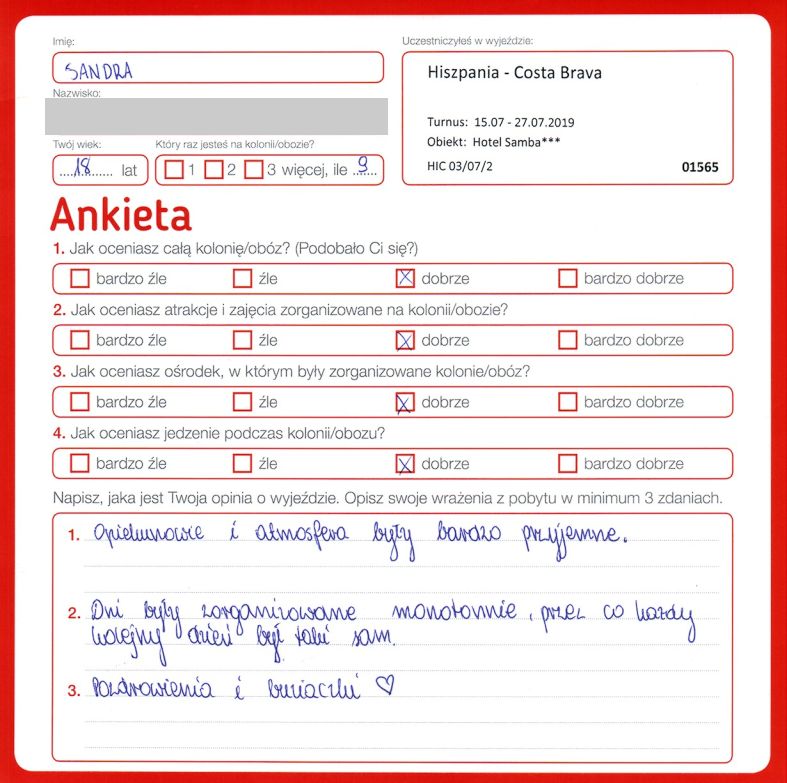 Imię:
SANDRA
Nazwisko:
Twój wiek:
18 lat
Który raz jesteś na kolonii/obozie?
1 2 3 więcej, ile 9
Uczestniczyłeś w wyjeździe:
Hiszpania - Costa Brava
Turnus: 15.07 - 27.07.2019
Obiekt: Hotel Samba***
HIC 03/07/2 01565
Ankieta
1. Jak oceniasz całą kolonię/obóz? (Podobało Ci się?)
bardzo źle źle dobrze bardzo dobrze
2. Jak oceniasz atrakcje i zajęcia zorganizowane na kolonii/obozie?
bardzo źle źle dobrze bardzo dobrze
3. Jak oceniasz ośrodek, w którym były zorganizowane kolonie/obóz?
bardzo źle źle dobrze bardzo dobrze
4. Jak oceniasz jedzenie podczas kolonii/obozu?
bardzo źle źle dobrze bardzo dobrze
Napisz, jaka jest Twoja opinia o wyjeździe. Opisz swoje wrażenia z pobytu w minimum 3 zdaniach.
1. Opiekunowie i atmosfera były bardzo przyjemne.
2. Dni były zorganizowane monotonnie, przez co każdy
kolejny dzień był taki sam.
3. Pozdrowienia i buziaczki ♡